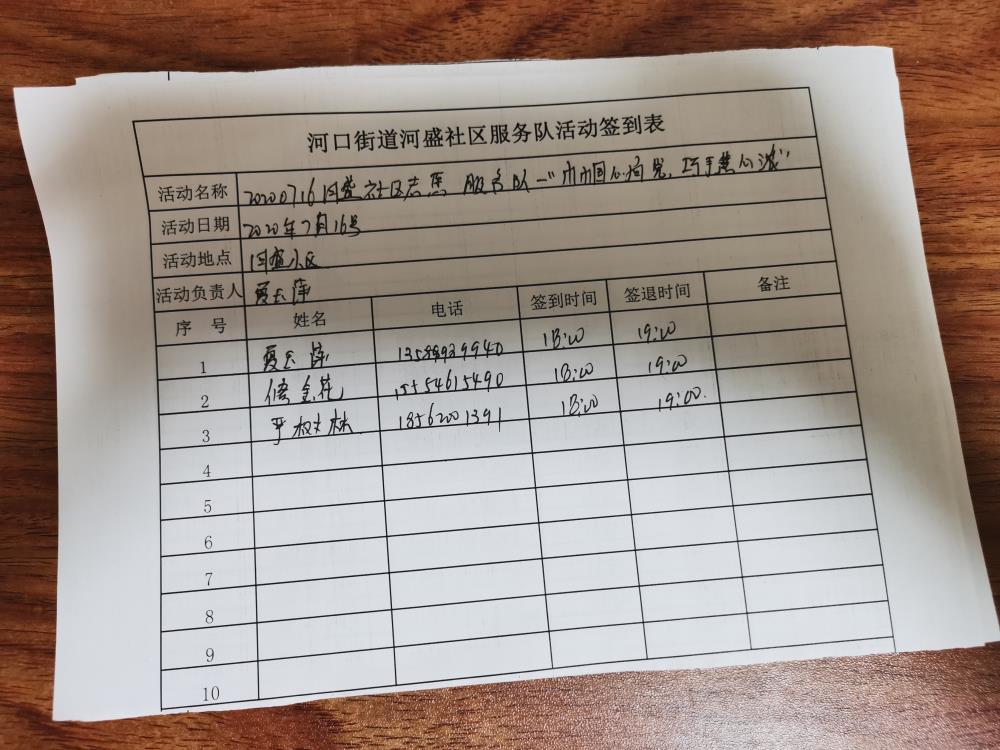 河口街道河盛社区服务队活动签到表
活动名称 20200716河盛社区志愿服务队一"巾帼心向党，巧手慧心
活动日期 2020年7月16号
活动地点 河盛小区
活动负责人 夏玉萍
序 号 姓名 电话 签到时间 签退时间 备注
1 夏玉萍 18:00 19:00
2 金花 15554615490 18:00 19:00
3 树林 18562001391 18:00 19:00
4
5
6
7
8
9
10